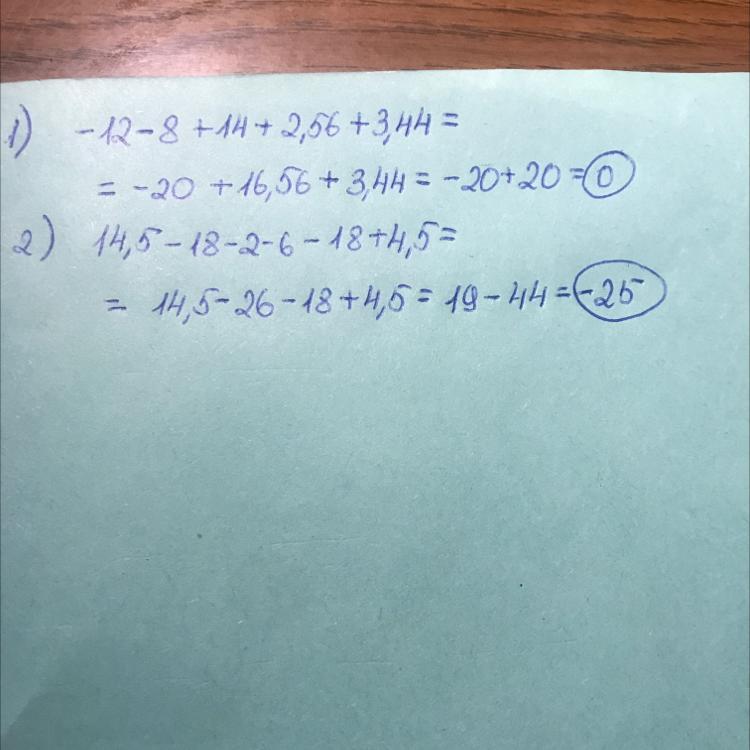 1) -12-8+14+2,56+3,44=
= -20+16,56+3,44=-20+20=0
2) 14,5-18-2-6-18+4,5=
= 14,5-26-18+4,5=19-44=-25